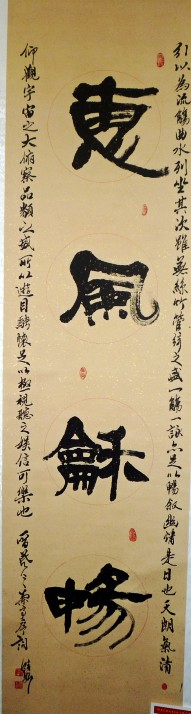 惠風龢暢
引以為流觴曲水列坐其次雖無絲竹管弦之盛一觴一詠亦足以暢敘幽情是日也天朗氣清
仰觀宇宙之大俯察品類之盛所以遊目騁懷足以極視聽之娛信可樂也